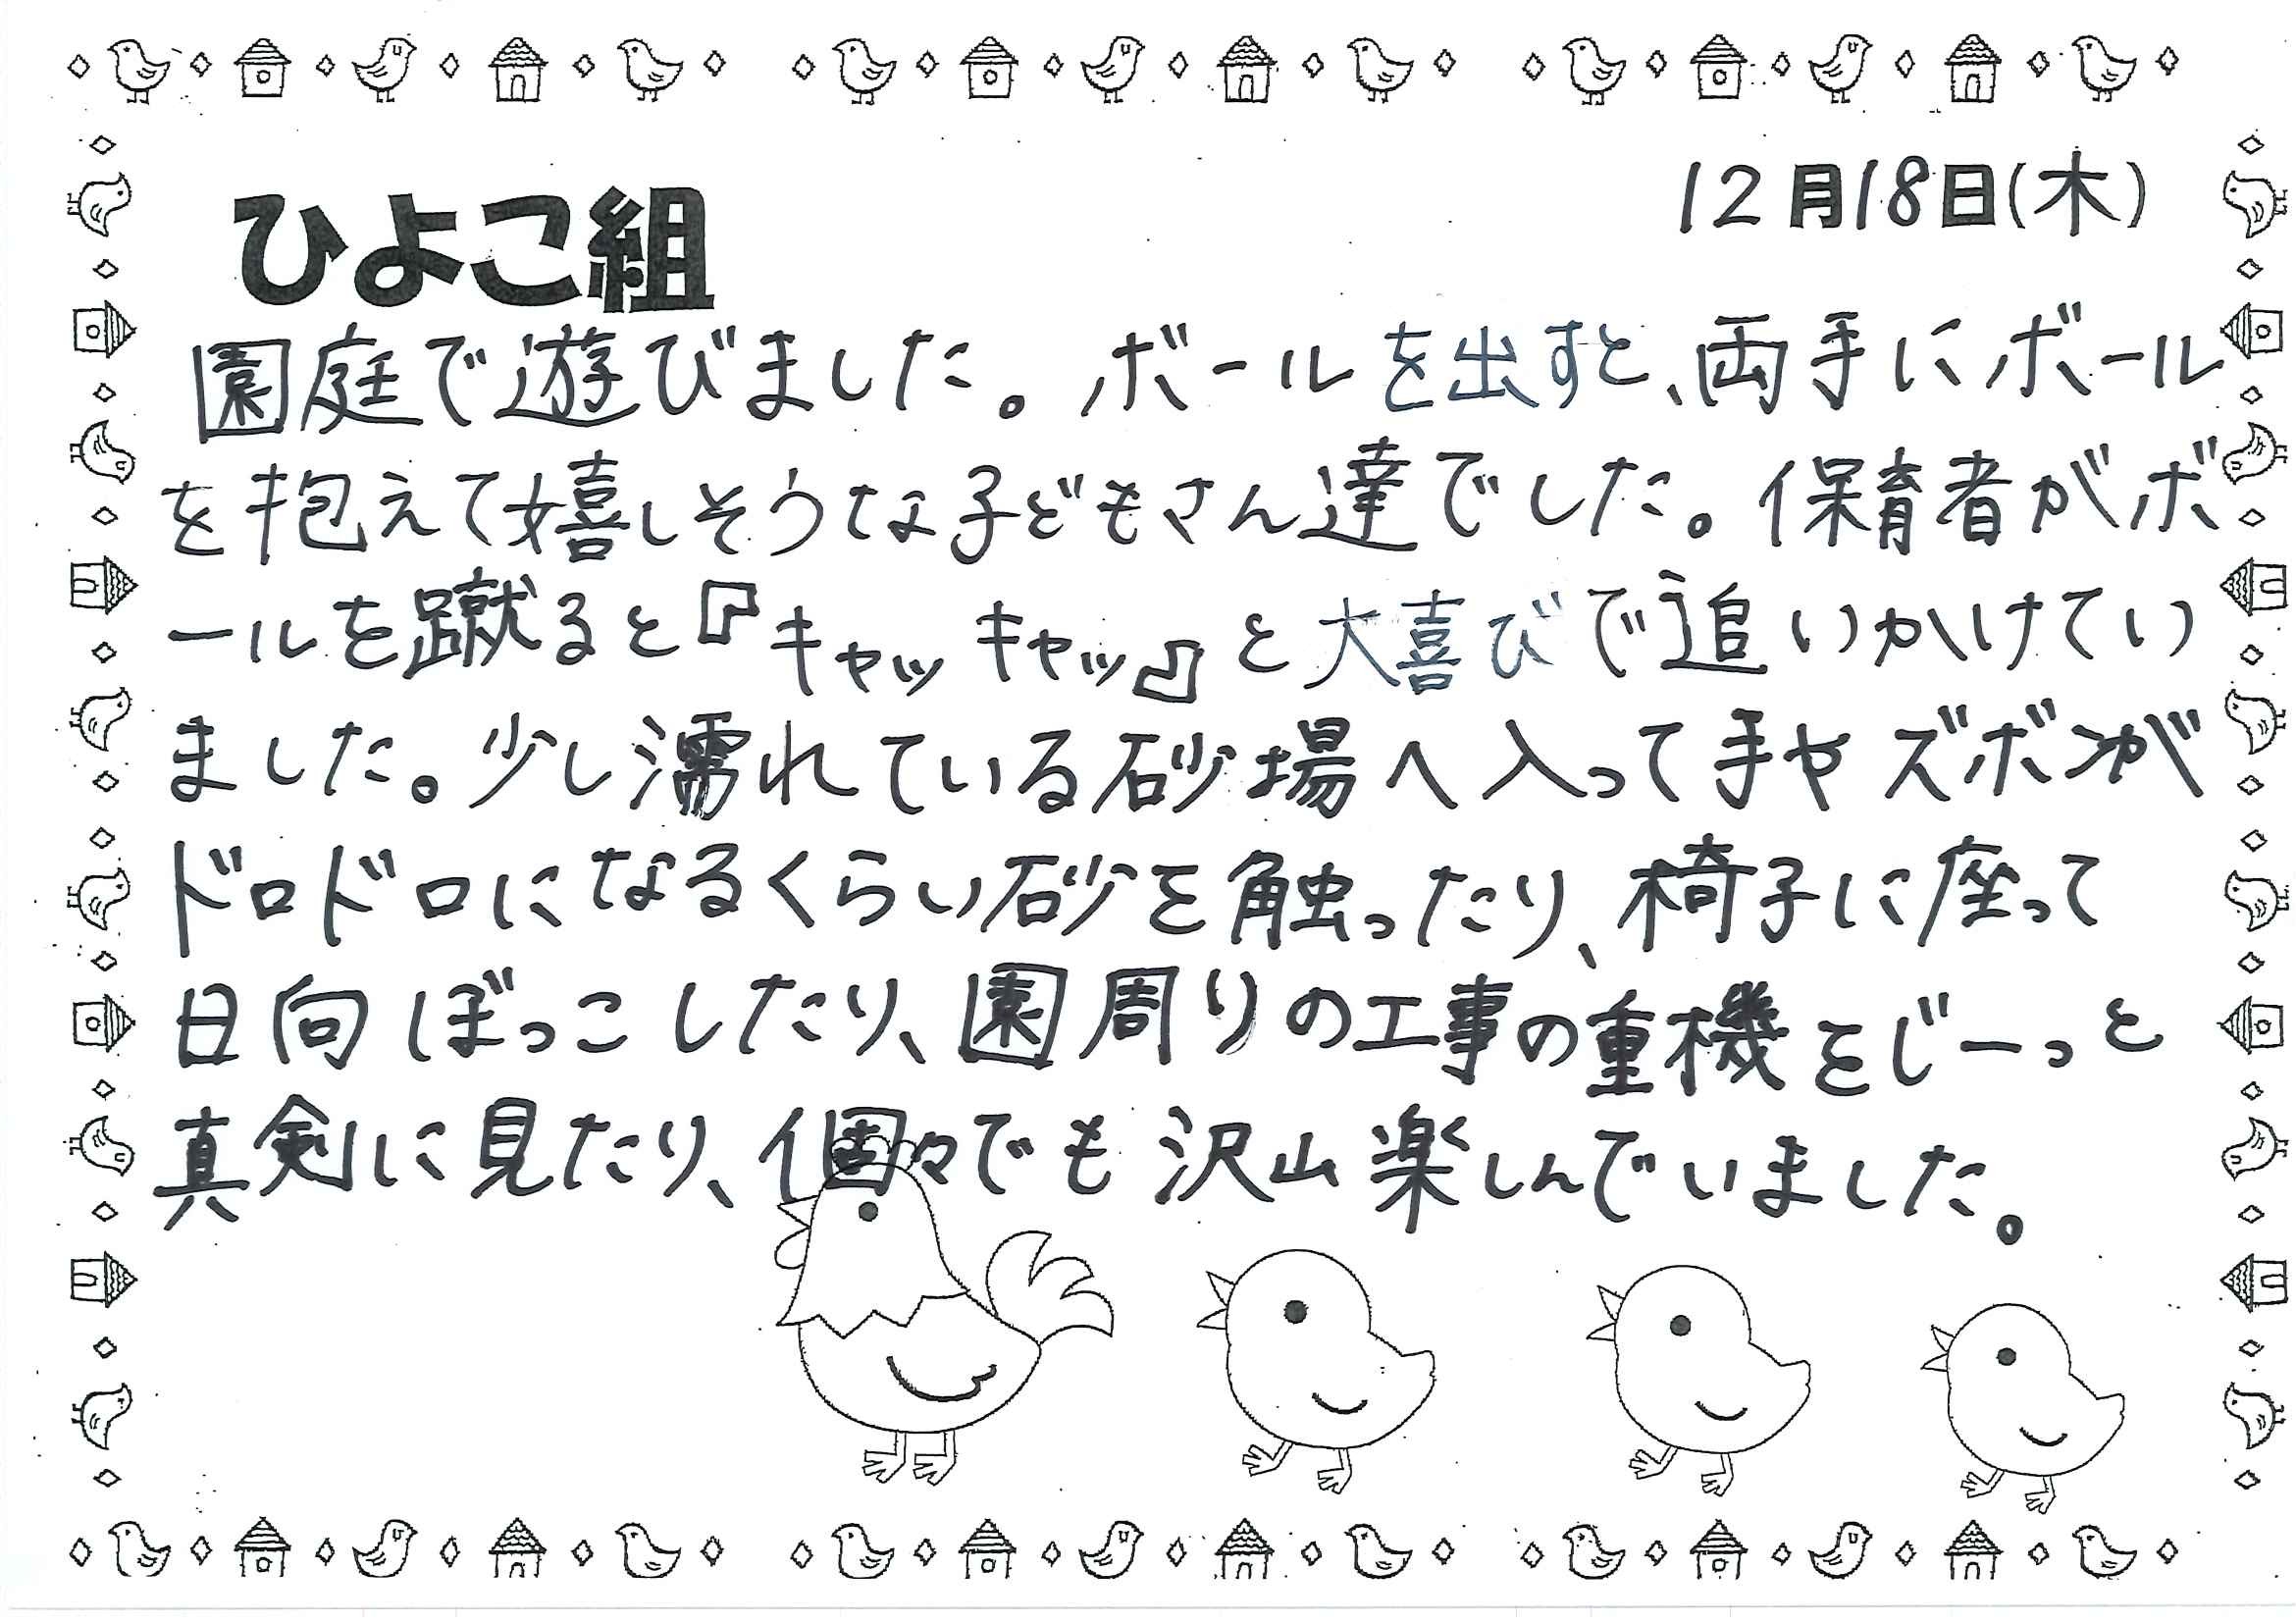 12月18日(木)
ひよこ組
園庭で遊びました。ボールを出すと、両手にボール
を抱えて嬉しそうな子どもさん達でした。保育者がボ
ールを蹴ると『キャッキャッ』と大喜びで追いかけてい
ました。少し濡れている砂場へ入って手やズボンが
ドロドロになるくらい砂を触ったり、椅子に座って
日向ぼっこしたり、園周りの工事の重機をじーっと
真剣に見たり、個々でも沢山楽しんでいました。